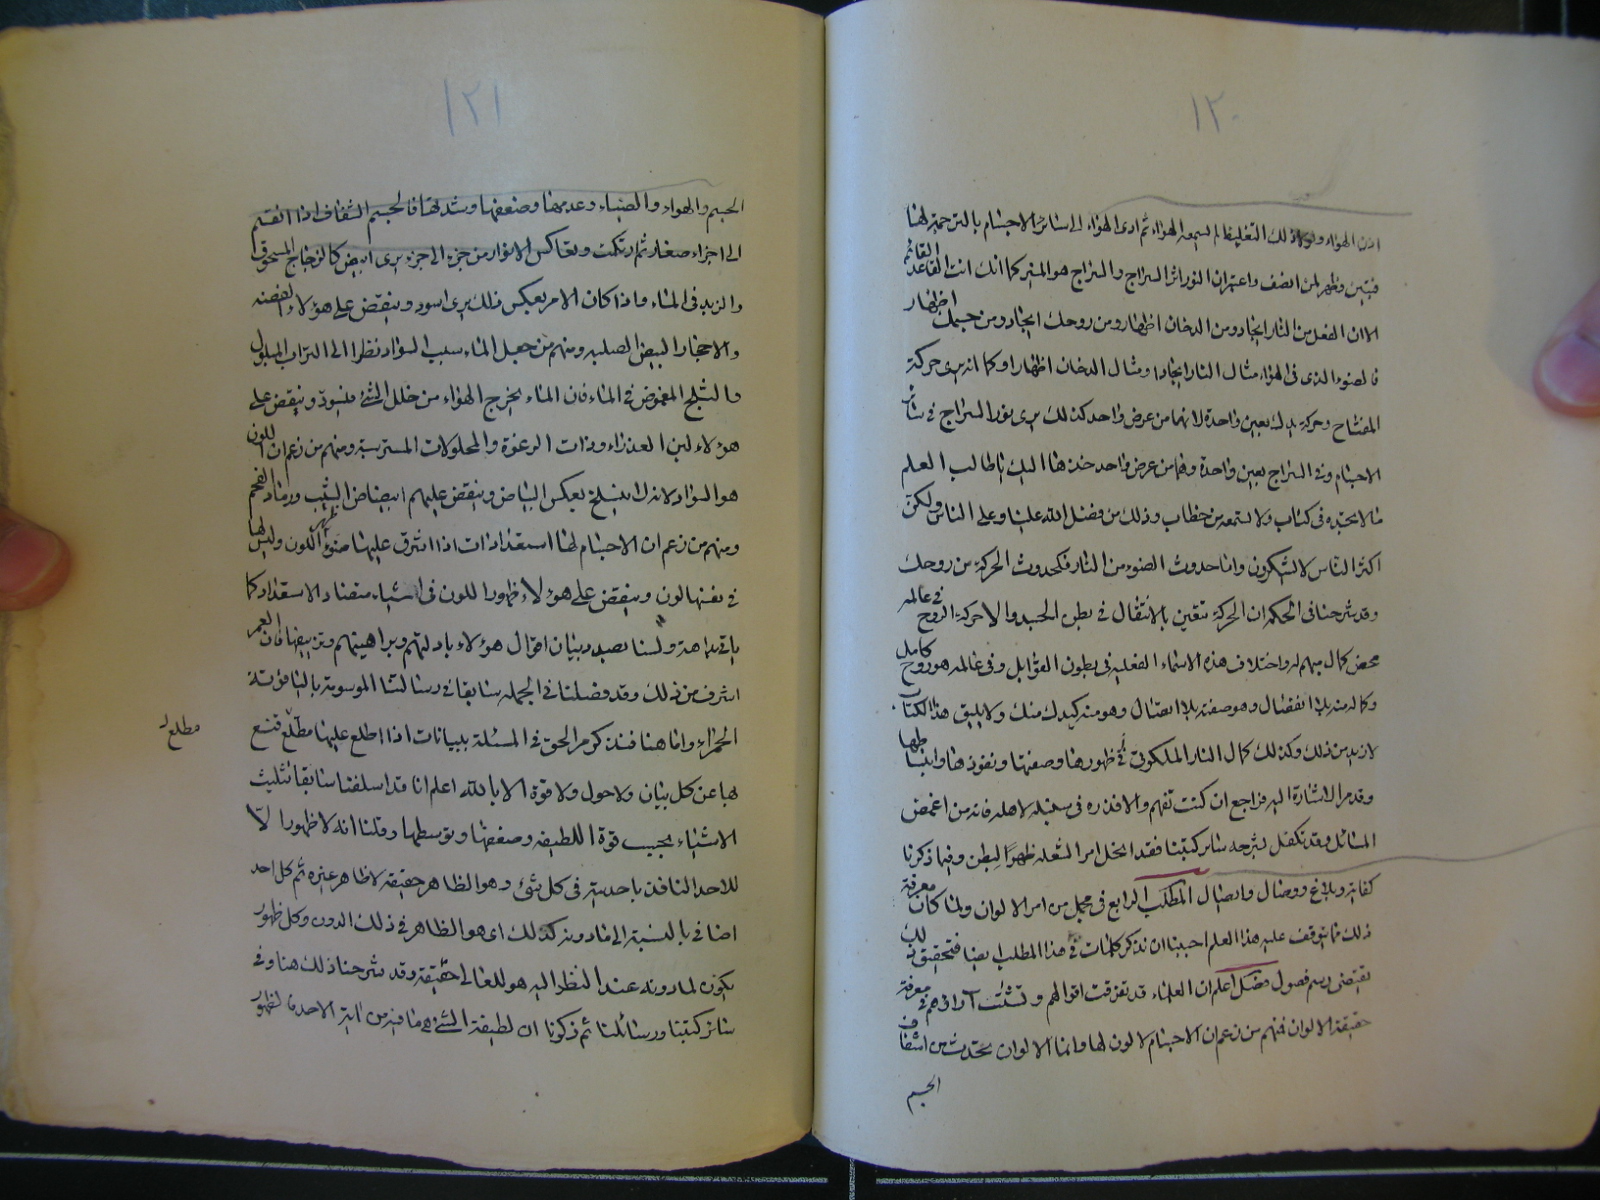 ١٢٠
اذن الهواء ولولا ذلك التغليظ لم يسمعه الهواء ثم ادى الهواء الى سائر الاجسام بالترجمة لها
فتبين وظهر لمن انصف واعتبر ان النور اثر السراج والسراج هو المنير كما انك انت القاعد القائم
الا ان الفعل من النار ايجاد ومن الدخان اظهار ومن روحك ايجاد ومن جسمك اظهار
فالضوء الذى فى الهواء مثال النار ايجادا ومثال الدخان اظهارا وكما انه يرى حركة
المفتاح وحركة يدك بعين واحدة لانهما من عرض واحد كذلك يرى نور السراج فى سائر
الاجسام وفى السراج بعين واحدة وهما من عرض واحد خذها اليك يا طالب العلم
ما لا تجده فى كتاب ولا تسمعه من خطاب وذلك من فضل الله علينا وعلى الناس ولكن
اكثر الناس لا يشكرون واما حدوث الضوء من النار فكحدوث الحركة من روحك
وقد شرحنا فى الحكمة ان الحركة تتعين بالانتقال فى بطن الجسد والا حركة الروح فى عالمه
محض كمال مبهم له واختلاف هذه الاسماء الفعلية فى بطون القوابل وفى عالمه هو روح كامل
وكماله منه بلا انفصال وهو صفته بلا اتصال وهو منه كيدك منك ولا يليق هذا الكتاب
لازيد من ذلك وكذلك كمال النار الملكوتى فى ظهورها وصفتها ونفوذها وانبساطها
وقد مر الاشارة اليه فراجع ان كنت تفهم والا فذره فى سنبله لاهله فانه من اغمض
المسائل وقد تكفل بشرحه سائر كتبنا فقد انحل امر الشعلة ظهرا لبطن وفيما ذكرنا
كفاية وبلاغ ووصال واتصال المطلب الرابع فى مجمل من امر الالوان ولما كان معرفة
ذلك مما يتوقف عليه هذا العلم احببنا ان نذكر كلمات فى هذا المطلب ايضا فتحقيق ذلك
يقتضى رسم فصول فصل اعلم ان العلماء قد تفرقت اقوالهم وتشتت آراؤهم فى معرفة
حقيقة الالوان فمنهم من زعم ان الاجسام لا لون لها وانما الالوان تحدث من اشفاف
الجسم
١٢١
الجسم والهواء والضياء وعدمها وضعفها وشدتها فالجسم الشفاف اذا انقسم
الى اجزاء صغار ثم ارتكمت وتعاكس الانوار من جزء الى جزء يرى ابيض كالزجاج المسحوق
والزبد فى الماء واذا كان الامر بعكس ذلك يرى اسود وينقض على هؤلاء الفضة
والاحجار البيض الصلبة ومنهم من جعل الماء سبب السواد نظرا الى التراب المبلول
والثلج المغموض فى الماء فان الماء يخرج الهواء من خلل الشئ فيسود وينقض على
هؤلاء لبن العذراء وذات الرغوة والمحلولات المترسبة ومنهم من زعم ان اللون
هو السواد لانه لا ينسلخ بعكس البياض وينقض عليهم ابيضاض الشيب ورماد الفحم
ومنهم من زعم ان الاجسام لها استعدادات اذا اشرق عليها ضوء ظهر اللون وليس لها
فى نفسها لون وينقض على هؤلاء ظهور اللون فى اشياء متضاد الاستعداد كما
ياتى بداهة ولسنا بصدد بيان اقوال هؤلاء بادلتهم وبراهينهم وتزييفها فان العمر
اشرف من ذلك وقد فصلنا فى الجملة سابقا فى رسالتنا الموسومة بالياقوتة
الحمراء واما هنا فنذكر مر الحق فى المسئلة ببيانات اذا اطلع عليها مطلع قنع
مطلع
بها عن كل بيان ولا حول ولا قوة الا بالله اعلم انا قد اسلفنا سابقا تثليث
الاشياء بحسب قوة اللطيفة وضعفها وتوسطها وقلنا انه لا ظهور الا
للاحد النافذ باحديته فى كل شئ وهو الظاهر حقيقة لا ظاهر غيره ثم كل احد
اضافى بالنسبة الى ما دونه كذلك اى هو الظاهر فى ذلك الدون وكل ظهور
يكون لما دونه عند النظر اليه هو للعالى حقيقة وقد شرحنا ذلك هنا وفى
سائر كتبنا ورسائلنا ثم ذكرنا ان لطيفة الشئ هى ما فيه من آية الاحد فالظهور